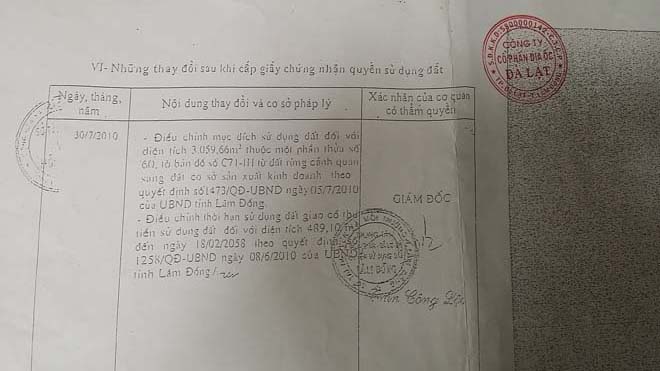 VI- Những thay đổi sau khi cấp giấy chứng nhận quyền sử dụng đất
CÔNG TY
CỔ PHẦN ĐỊA ỐC
ĐÀ LẠT
Ngày, tháng,
năm
Nội dung thay đổi và cơ sở pháp lý
Xác nhận của cơ quan
có thẩm quyền
30/7/2010
- Điều chỉnh mục đích sử dụng đất đối với
diện tích 3.059,66m² thuộc một phần thửa số
60, tờ bản đồ số C71-III từ đất rừng cảnh quan
sang đất cơ sở sản xuất kinh doanh theo
quyết định số1473/QĐ-UBND ngày 05/7/2010
của UBND tỉnh Lâm Đồng.
- Điều chỉnh thời hạn sử dụng đất giao có thu
tiền sử dụng đất đối với diện tích 489,10
đến ngày 18/02/2058 theo quyết định số
1258/QĐ-UBND ngày 08/6/2010 của UBND
tỉnh Lâm Đồng/
GIÁM ĐỐC
LÂM ĐỒNG
Công